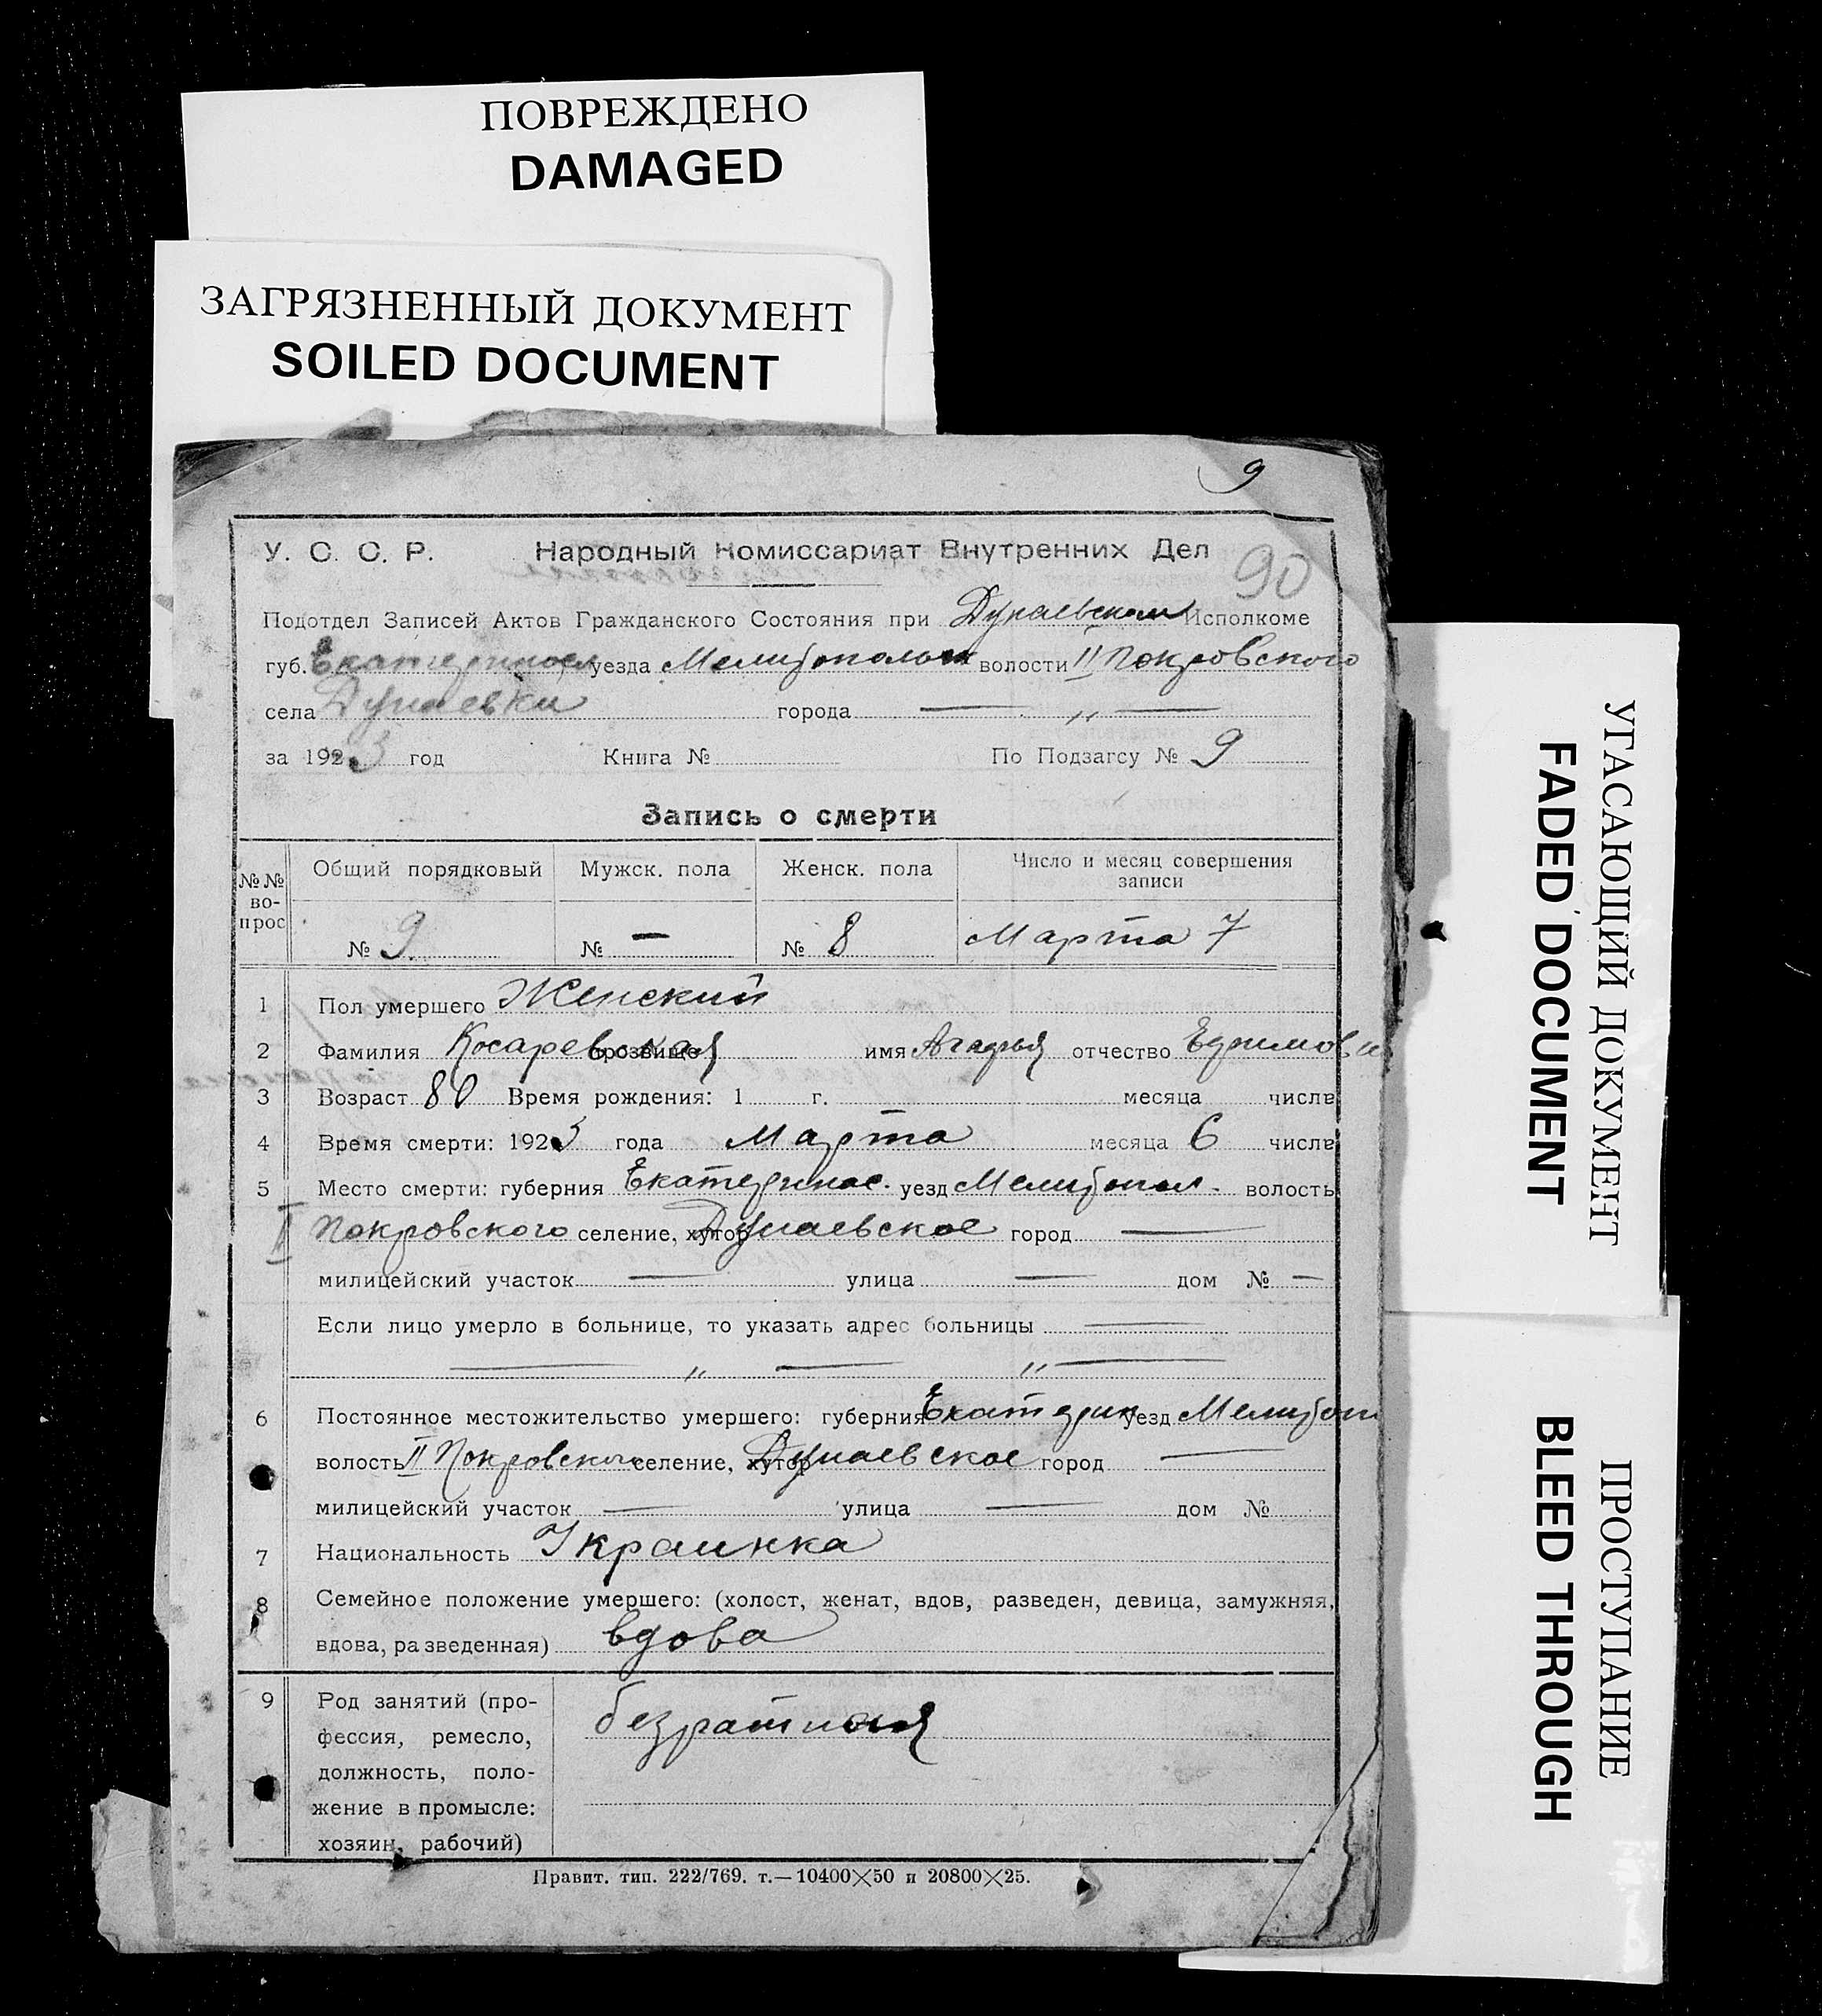 ПОВРЕЖДЕНО
DAMAGED
ЗАГРЯЗНЕННЫЙ ДОКУМЕНТ
SOILED DOCUMENT
9
90
У. С. С. Р. Народный Комиссариат Внутренних Дел
Подотдел Записей Актов Гражданского Состояния при Дунаевском Исполкоме
губ. Екатеринос уезда Мелитопольск волости II Покровского
села Дунаевки города — „ —
за 1923 год Книга № По Подзагсу № 9
Запись о смерти
№№ вопрос Общий порядковый Мужск. пола Женск. пола Число и месяц совершения записи
№ 9 № — № 8 Марта 7
1 Пол умершего Женский
2 Фамилия Косаревская прозвище имя отчество
3 Возраст 80 Время рождения: 1 г. месяца числа
4 Время смерти: 1923 года Марта месяца 6 числа
5 Место смерти: губерния Екатеринос. уезд Мелитопол. волость
II Покровского селение, хутор Дунаевское город —
милицейский участок — улица — дом № —
Если лицо умерло в больнице, то указать адрес больницы —
— „ — „ —
6 Постоянное местожительство умершего: губерния Екатерин уезд Мелитоп
волость II Покровского селение, хутор Дунаевское город —
милицейский участок — улица — дом №
7 Национальность Украинка
8 Семейное положение умершего: (холост, женат, вдов, разведен, девица, замужняя,
вдова, разведенная) вдова
9 Род занятий (про-
фессия, ремесло,
должность, поло-
жение в промысле:
хозяин, рабочий)
Правит. тип. 222/769. т.—10400×50 и 20800×25.
УГАСАЮЩИЙ ДОКУМЕНТ
FADED DOCUMENT
ПРОСТУПАНИЕ
BLEED THROUGH